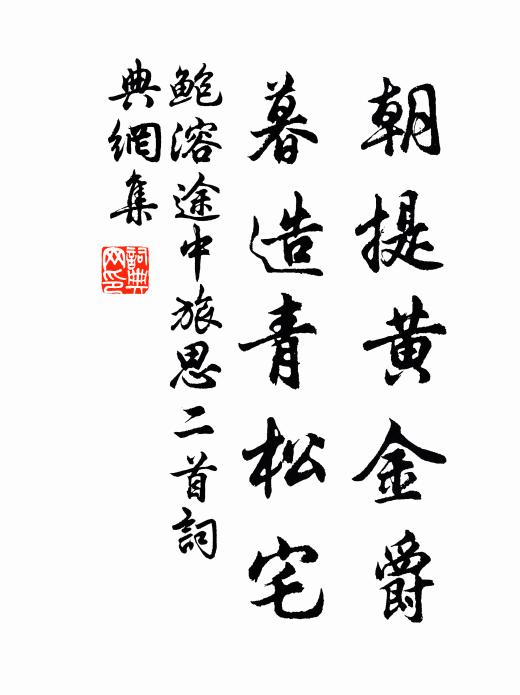 朝提黃金爵
暮造青松宅
鲍溶途中旅思二首詞
典網集
詞典网印